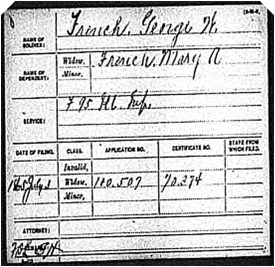 NAME OF SOLDIER: French, George W.
NAME OF DEPENDENT: Widow, French, Mary A
Minor,
SERVICE: F 95 Ill Inf.
DATE OF FILING. CLASS. APPLICATION NO. CERTIFICATE NO. STATE FROM WHICH FILED.
Invalid,
Widow, 110.507 70.274
Minor,
ATTORNEY: